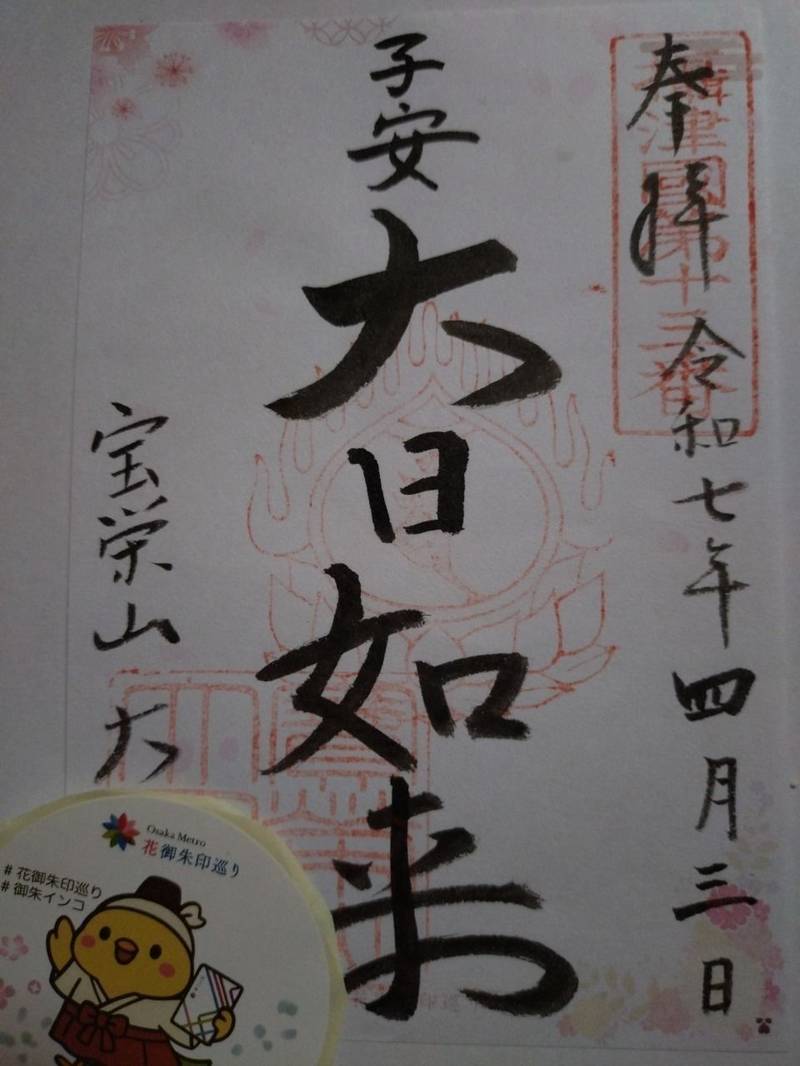 奉拝
令和七年四月三日
攝津國第十三番
子安
大日如来
宝栄山
大
Osaka Metro
花御朱印巡り
#花御朱印巡り
#御朱インコ